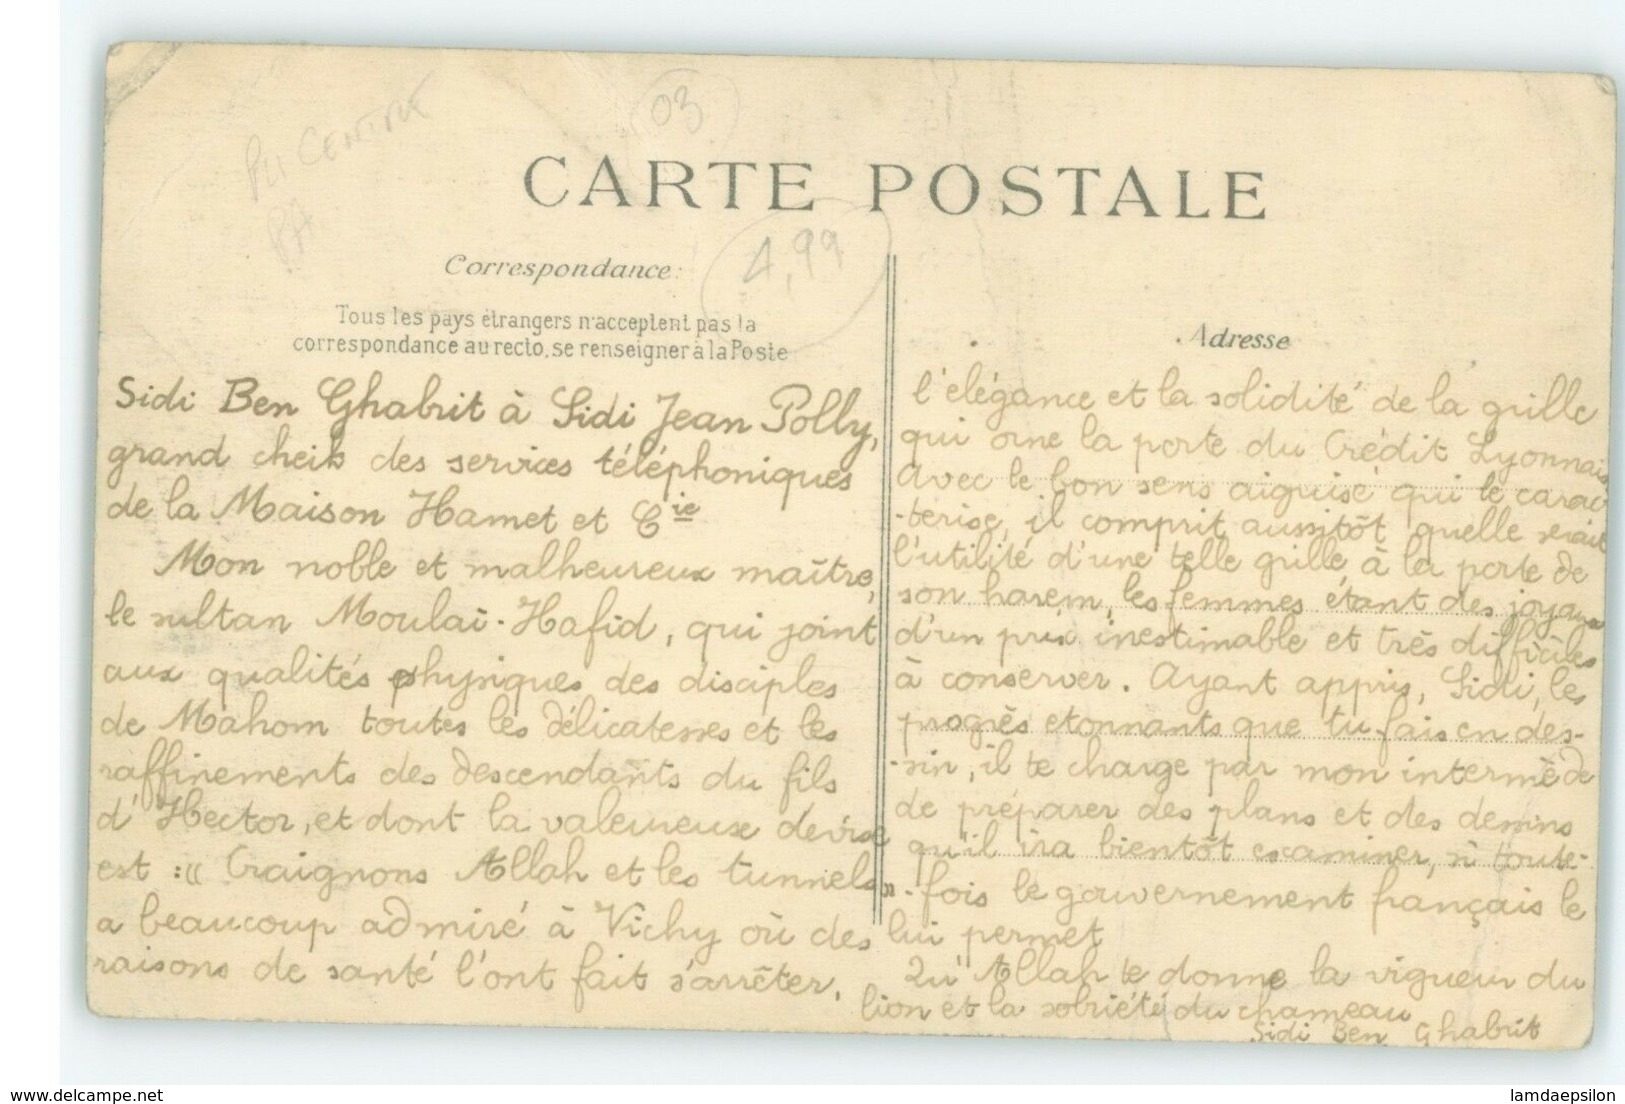 PLI CENTRAL
PA
03
CARTE POSTALE
4,99
Correspondance:
Tous les pays étrangers n'acceptent pas la
correspondance au recto, se renseigner à la Poste
Sidi Ben Ghabrit à Sidi Jean Polly,
grand cheik des services téléphoniques
de la Maison Hamet et Cie
Mon noble et malheureux maître,
le sultan Moulaï-Hafid, qui joint
aux qualités physiques des disciples
de Mahom toutes les délicatesses et les
raffinements des descendants du fils
d'Hector, et dont la valeureuse devise
est : « Craignons Allah et les tunnels »
a beaucoup admiré à Vichy où des
raisons de santé l'ont fait s'arrêter,
Adresse
l'elégance et la solidité de la grille
qui orne la porte du Crédit Lyonnais
Avec le bon sens aiguisé qui le carac
-terise, il comprit aussitôt quelle serait
l'utilité d'une telle grille à la porte de
son harem, les femmes étant des joyaux
d'un prix inestimable et très difficiles
à conserver. Ayant appris, Sidi, les
progrès etonnants que tu fais en des-
-sin, il te charge par mon intermède
de préparer des plans et des dessins
qu'il ira bientôt examiner, si toute-
-fois le gouvernement français le
lui permet
Qu'Allah te donne la vigueur du
lion et la sobriété du chameau
Sidi Ben Ghabrit
www.delcampe.net
lamdaepsilon